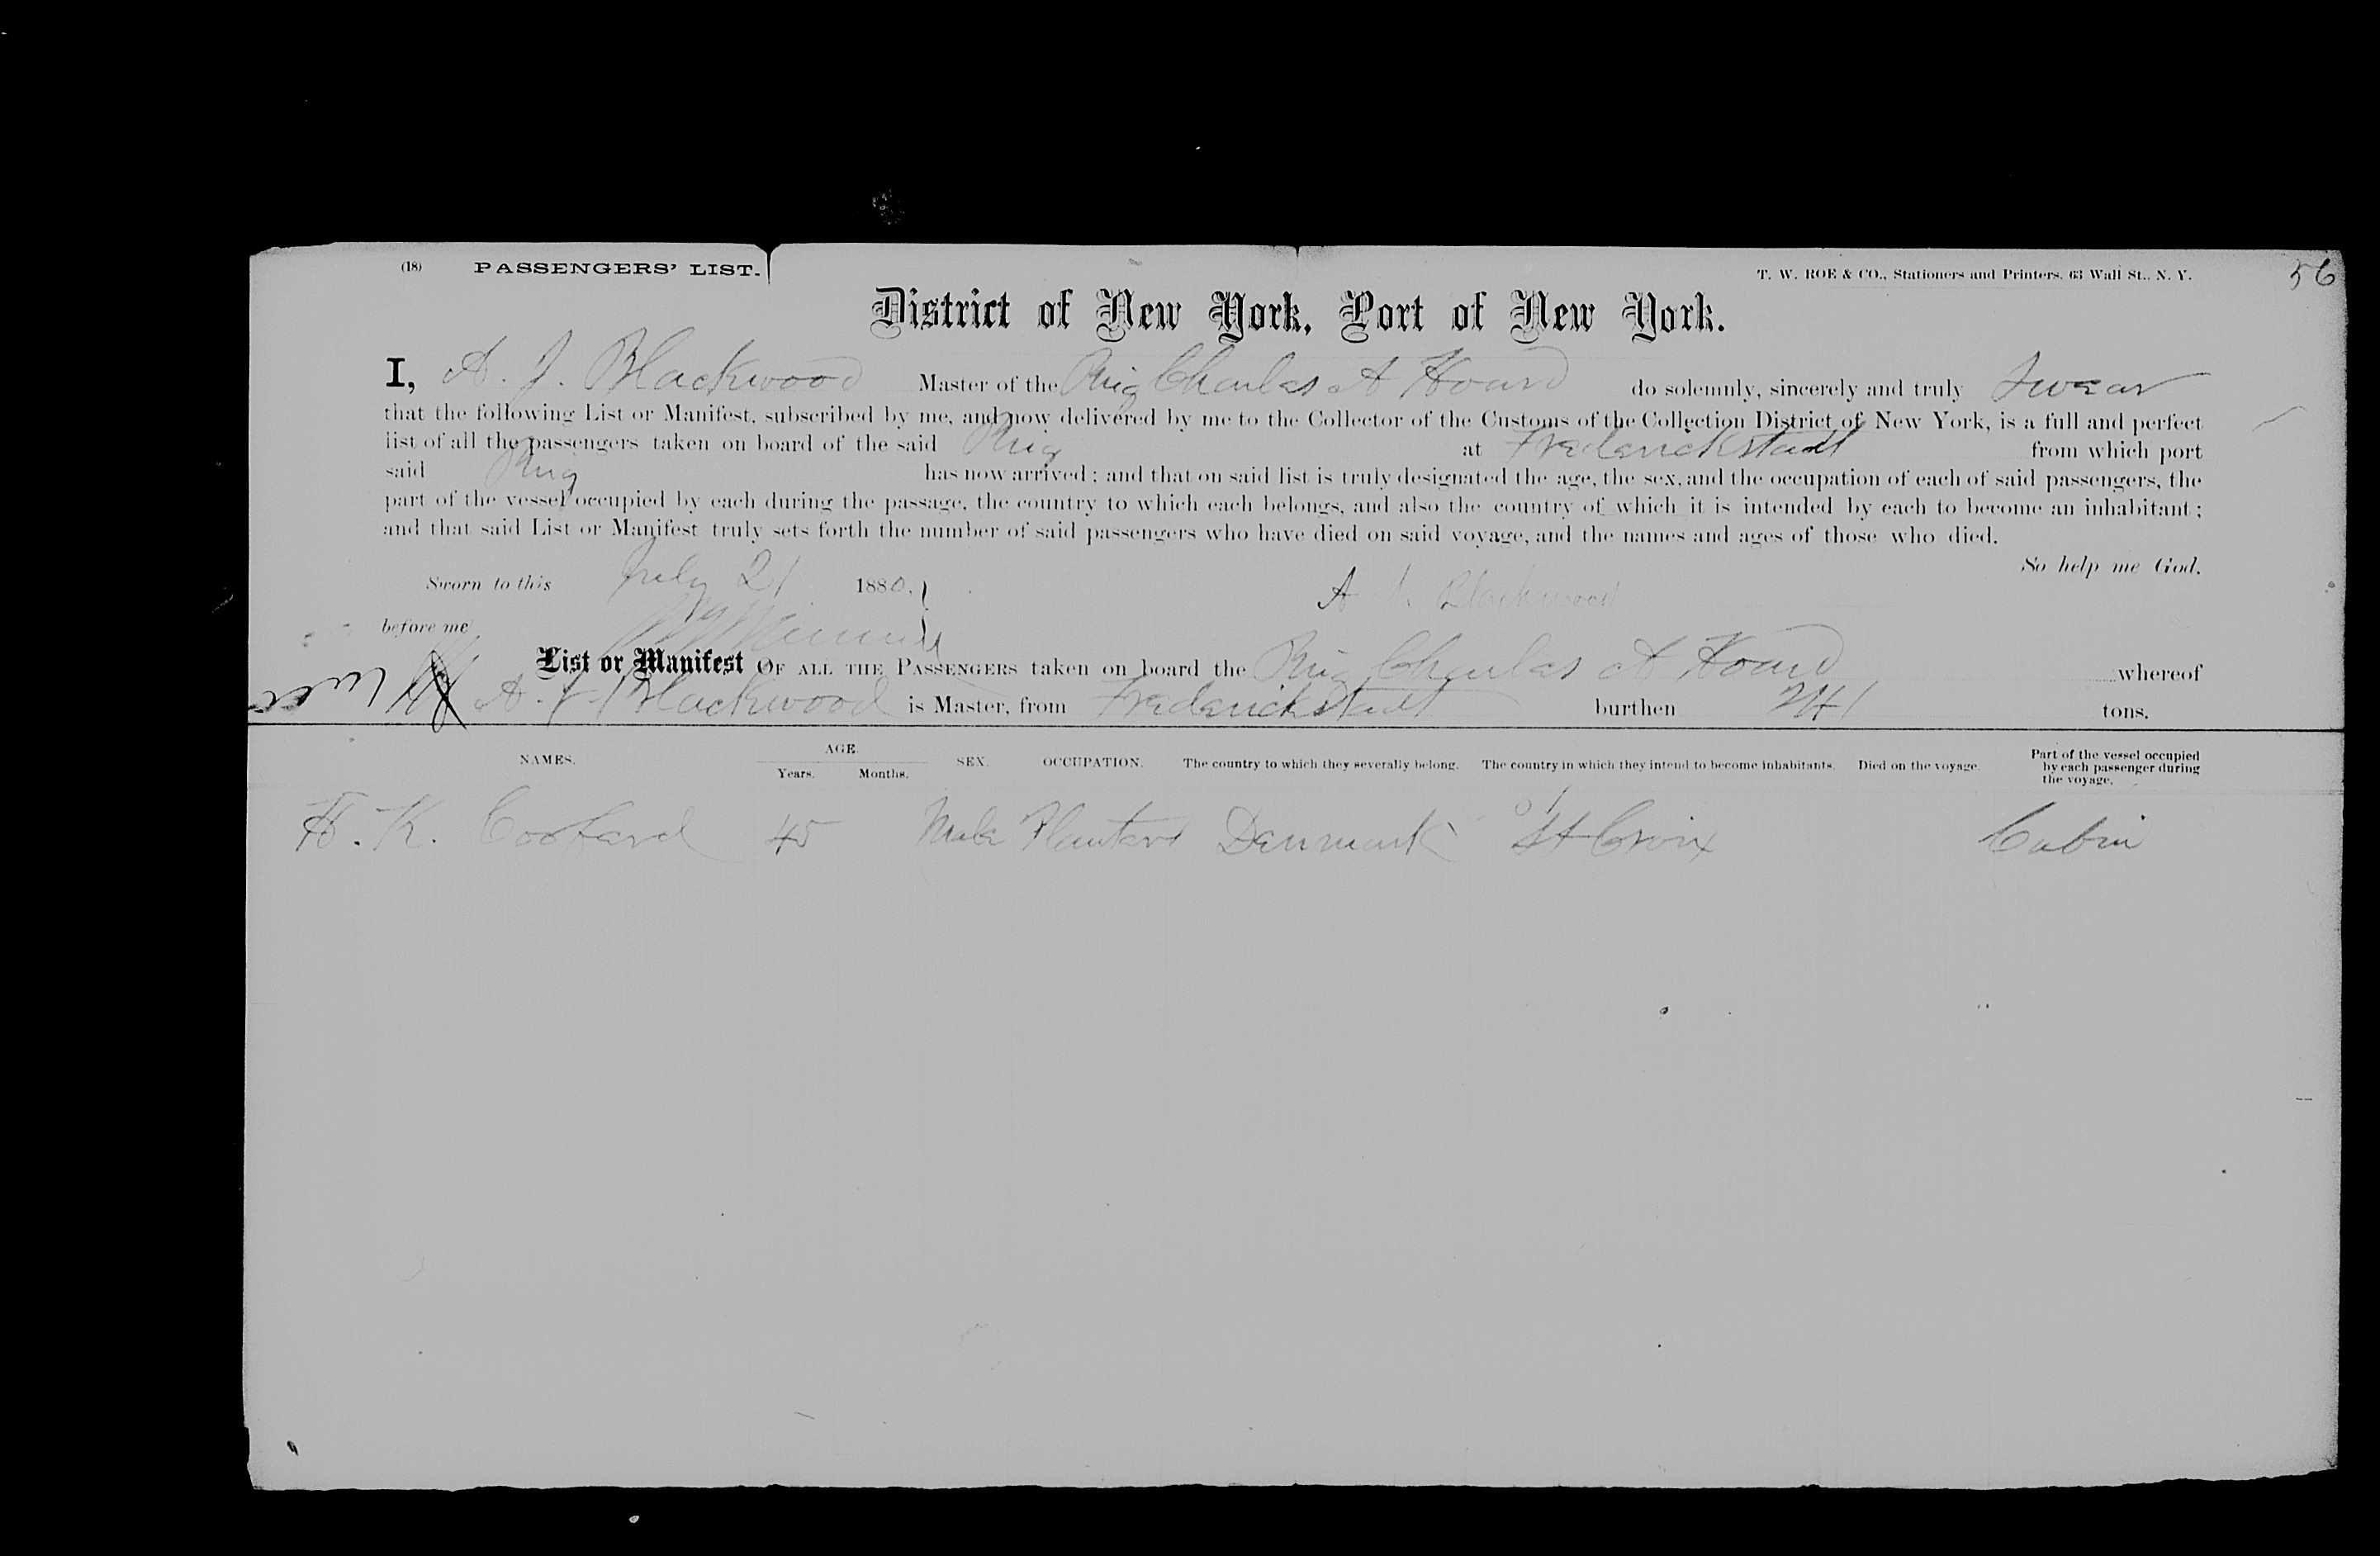 (18) PASSENGERS' LIST. T. W. ROE & CO., Stationers and Printers, 63 Wall St., N. Y. 56
District of New York, Port of New York.
I, A. J. Blackwood Master of the Brig Charles A Hoard do solemnly, sincerely and truly Swear
that the following List or Manifest, subscribed by me, and now delivered by me to the Collector of the Customs of the Collection District of New York, is a full and perfect
list of all the passengers taken on board of the said Brig at Frederickstadt from which port
said Brig has now arrived; and that on said list is truly designated the age, the sex, and the occupation of each of said passengers, the
part of the vessel occupied by each during the passage, the country to which each belongs, and also the country of which it is intended by each to become an inhabitant;
and that said List or Manifest truly sets forth the number of said passengers who have died on said voyage, and the names and ages of those who died.
So help me God.
Sworn to this July 21 1880. A J. Blackwood
before me
List or Manifest OF ALL THE PASSENGERS taken on board the Brig Charles A Hoard whereof
A. J. Blackwood is Master, from Frederickstadt burthen 241 tons.
NAMES. AGE. Years. Months. SEX. OCCUPATION. The country to which they severally belong. The country in which they intend to become inhabitants. Died on the voyage. Part of the vessel occupied by each passenger during the voyage.
H. K. 45 Male Planter Denmark St Croix Cabin